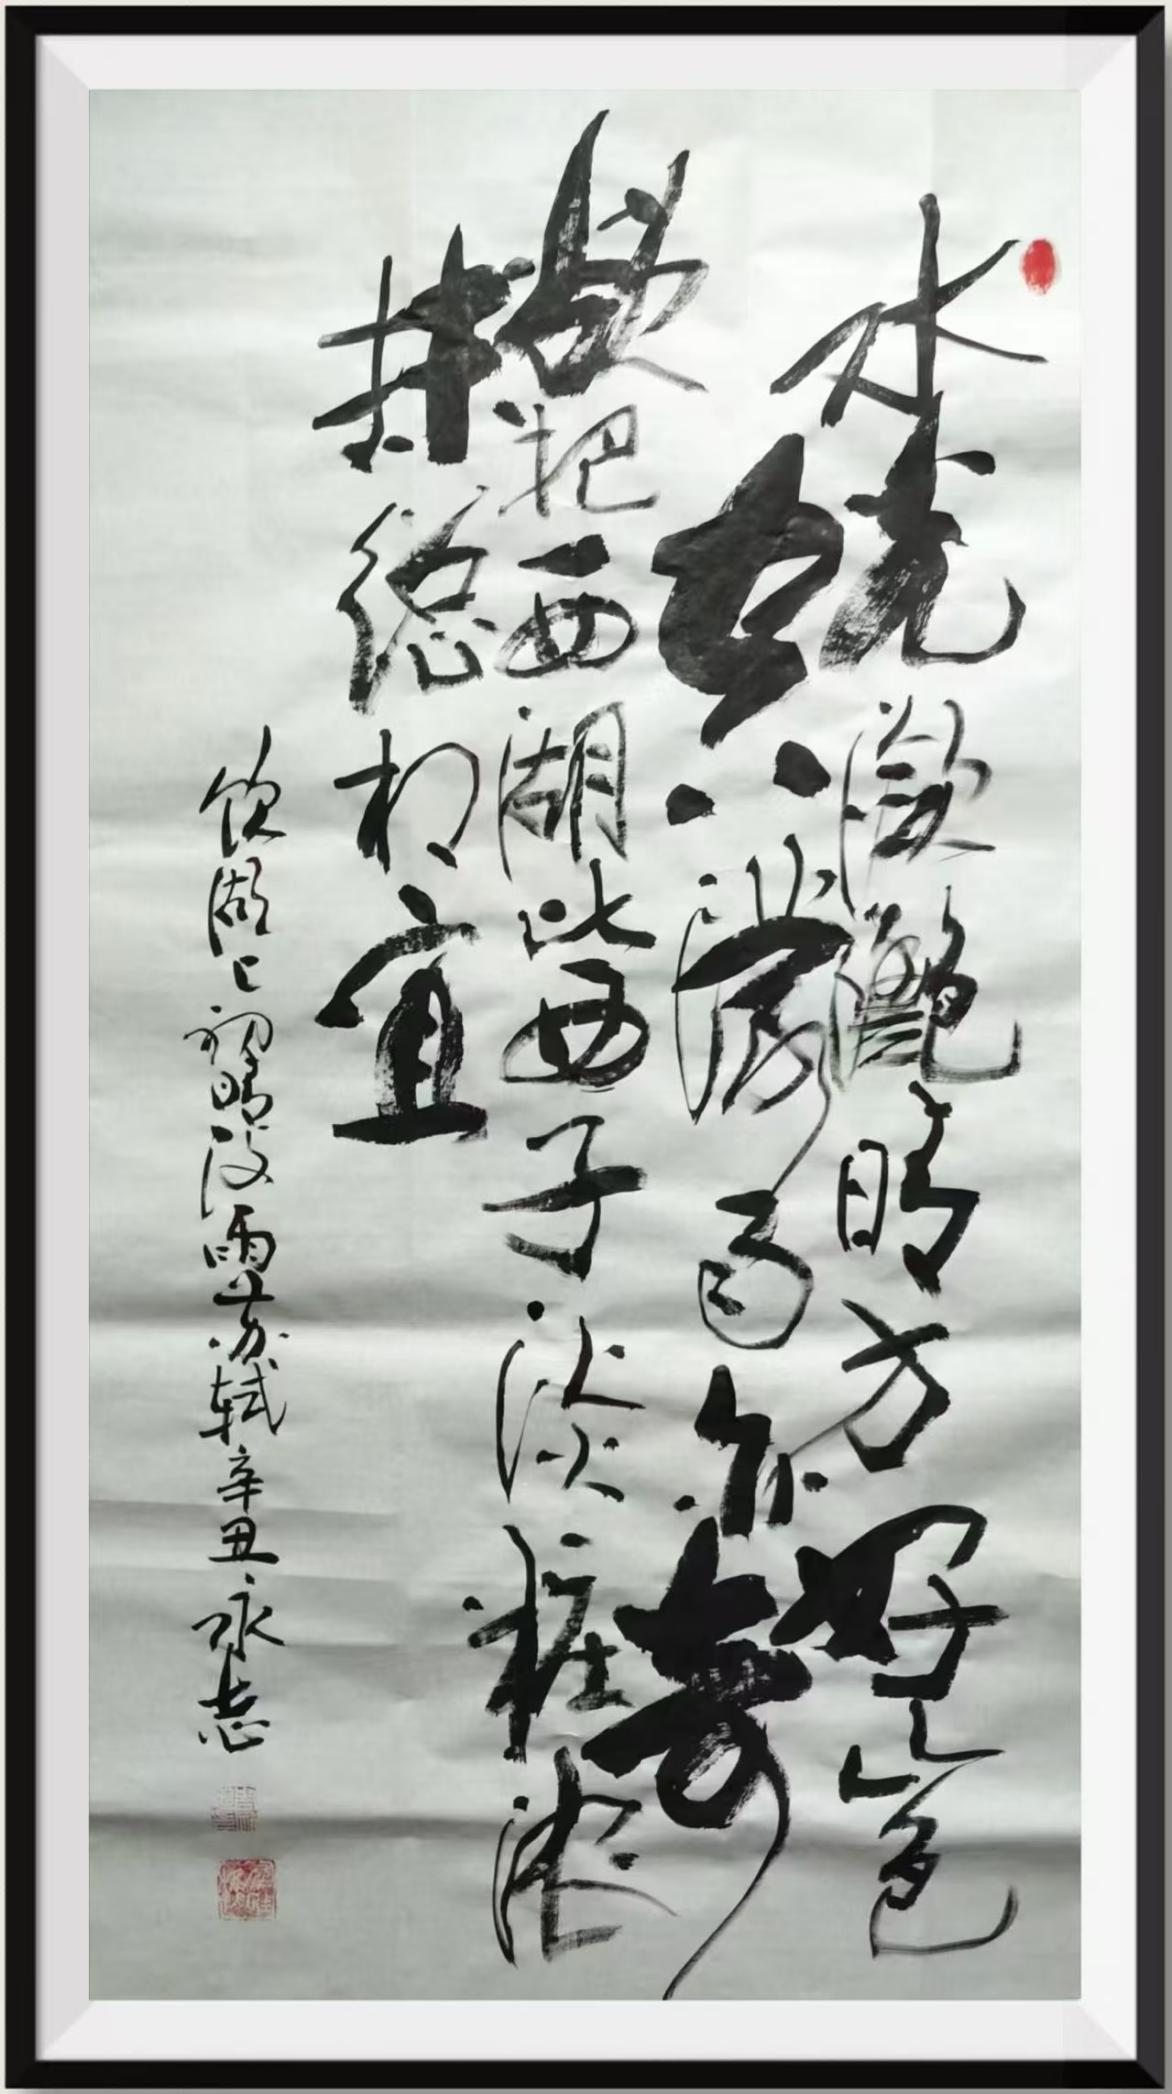 水光潋灧晴方好山色
空濛雨亦奇
欲把西湖比西子淡粧浓
抹總相宜
饮湖上初晴後雨苏轼辛丑永志